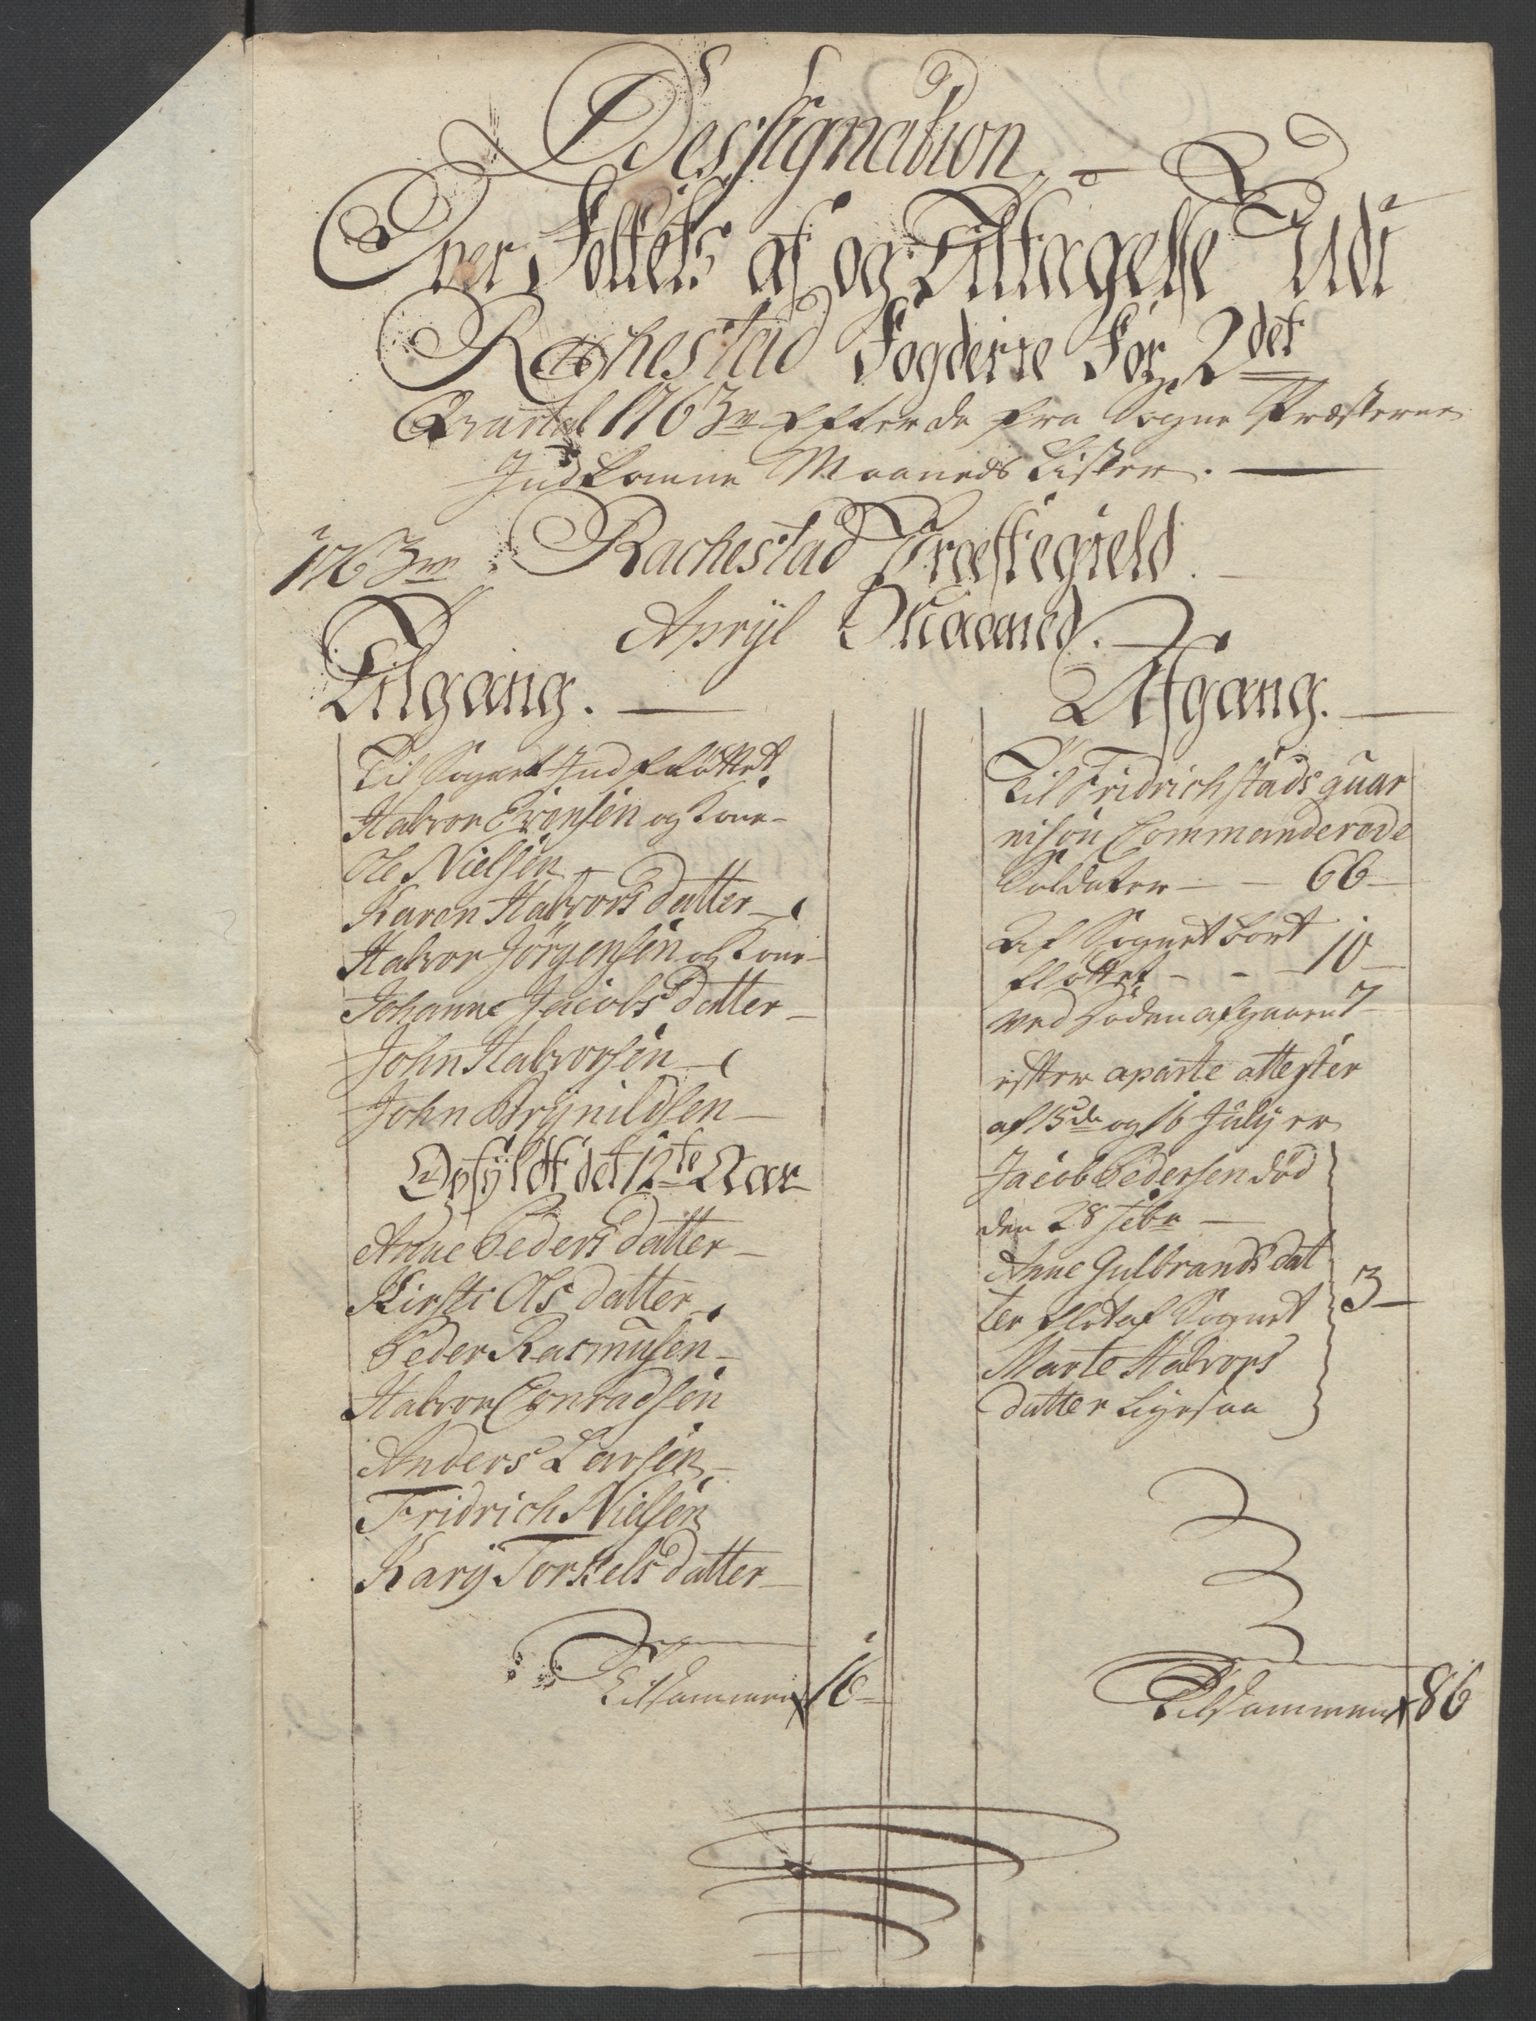 Dessignation
Over Folkets af og Tiltagelse Udi
Rachestad Fogderie For 2det
Qvartal 1763 Efter de fra Sogne Præsterne
Indkomne Maaneds Lister.
1763 Rachestad Præstegield.
Aprjl Maaned.
Tilgang.
Til Sognet Indfløttet
Halvor Evensen og Kone
Ole Nielsen
Karen Halvors datter
Halvor Jørgensen og Kone
Johanne Jacobs datter
John Halvorsen
John Brynildsen
Opfyldt det 12te Aar
Anne Peders datter
Kirsti Ols datter
Peder Rasmusen
Halvor Conradsen
Anders Larsen
Fridrich Nielsen
Kary Torkels datter
Tilsammen 16
Afgang.
Til Fridrichstads guar
nison Commanderede
Soldater 66
Af Sognet bort
fløttet 10
Ved Døden afgaaen 7
efter aparte attester
af 15de og 16 July er
Jacob Pedersen død
den 28 Febr
Anne Gulbrands dat
ter fløt af Sognet 3
Marte Halvors
datter
Tilsammen 86